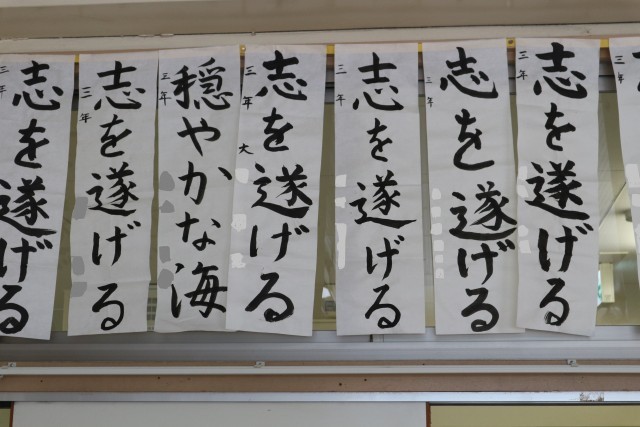 志を遂げる
三年
志を遂げる
三年
志を遂げる
三年
志を遂げる
三年 大
穏やかな海
三年
志を遂げる
三年
志を遂げる
三年